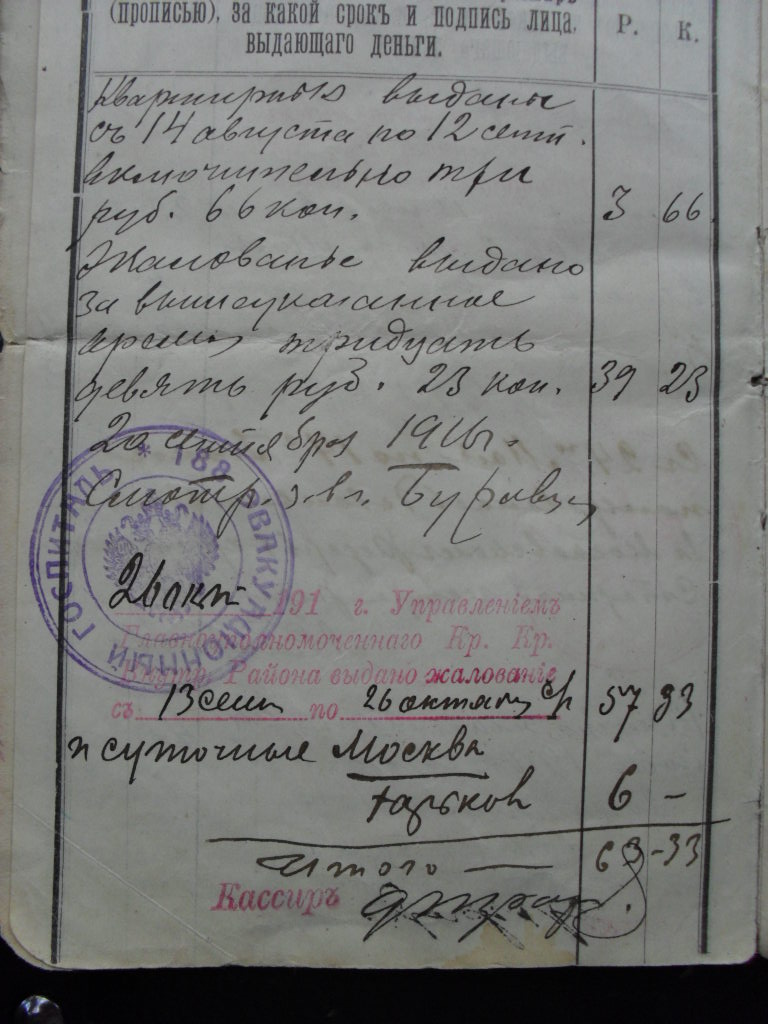 (прописью), за какой срокъ и подпись лица,
выдающаго деньги.
Р. К.
Квартирныя выданы
съ 14 августа по 12 сент.
включительно три
руб. 66 коп. 3 66
Жалованье выдано
за вышеуказанное
время тридцать
девять руб. 23 коп. 39 23
сентября 1916 г.
Смотр.
* 188 ЭВАКУАЦИОННЫЙ ГОСПИТАЛЬ
26 окт 191 г. Управленіемъ
Главноуполномоченнаго Кр. Кр.
Внутр. Района выдано жалованіе
съ 13 сент по 26 октября 57 33
и суточные Москва
Харьков 6 -
Итого — 63-33
Кассиръ